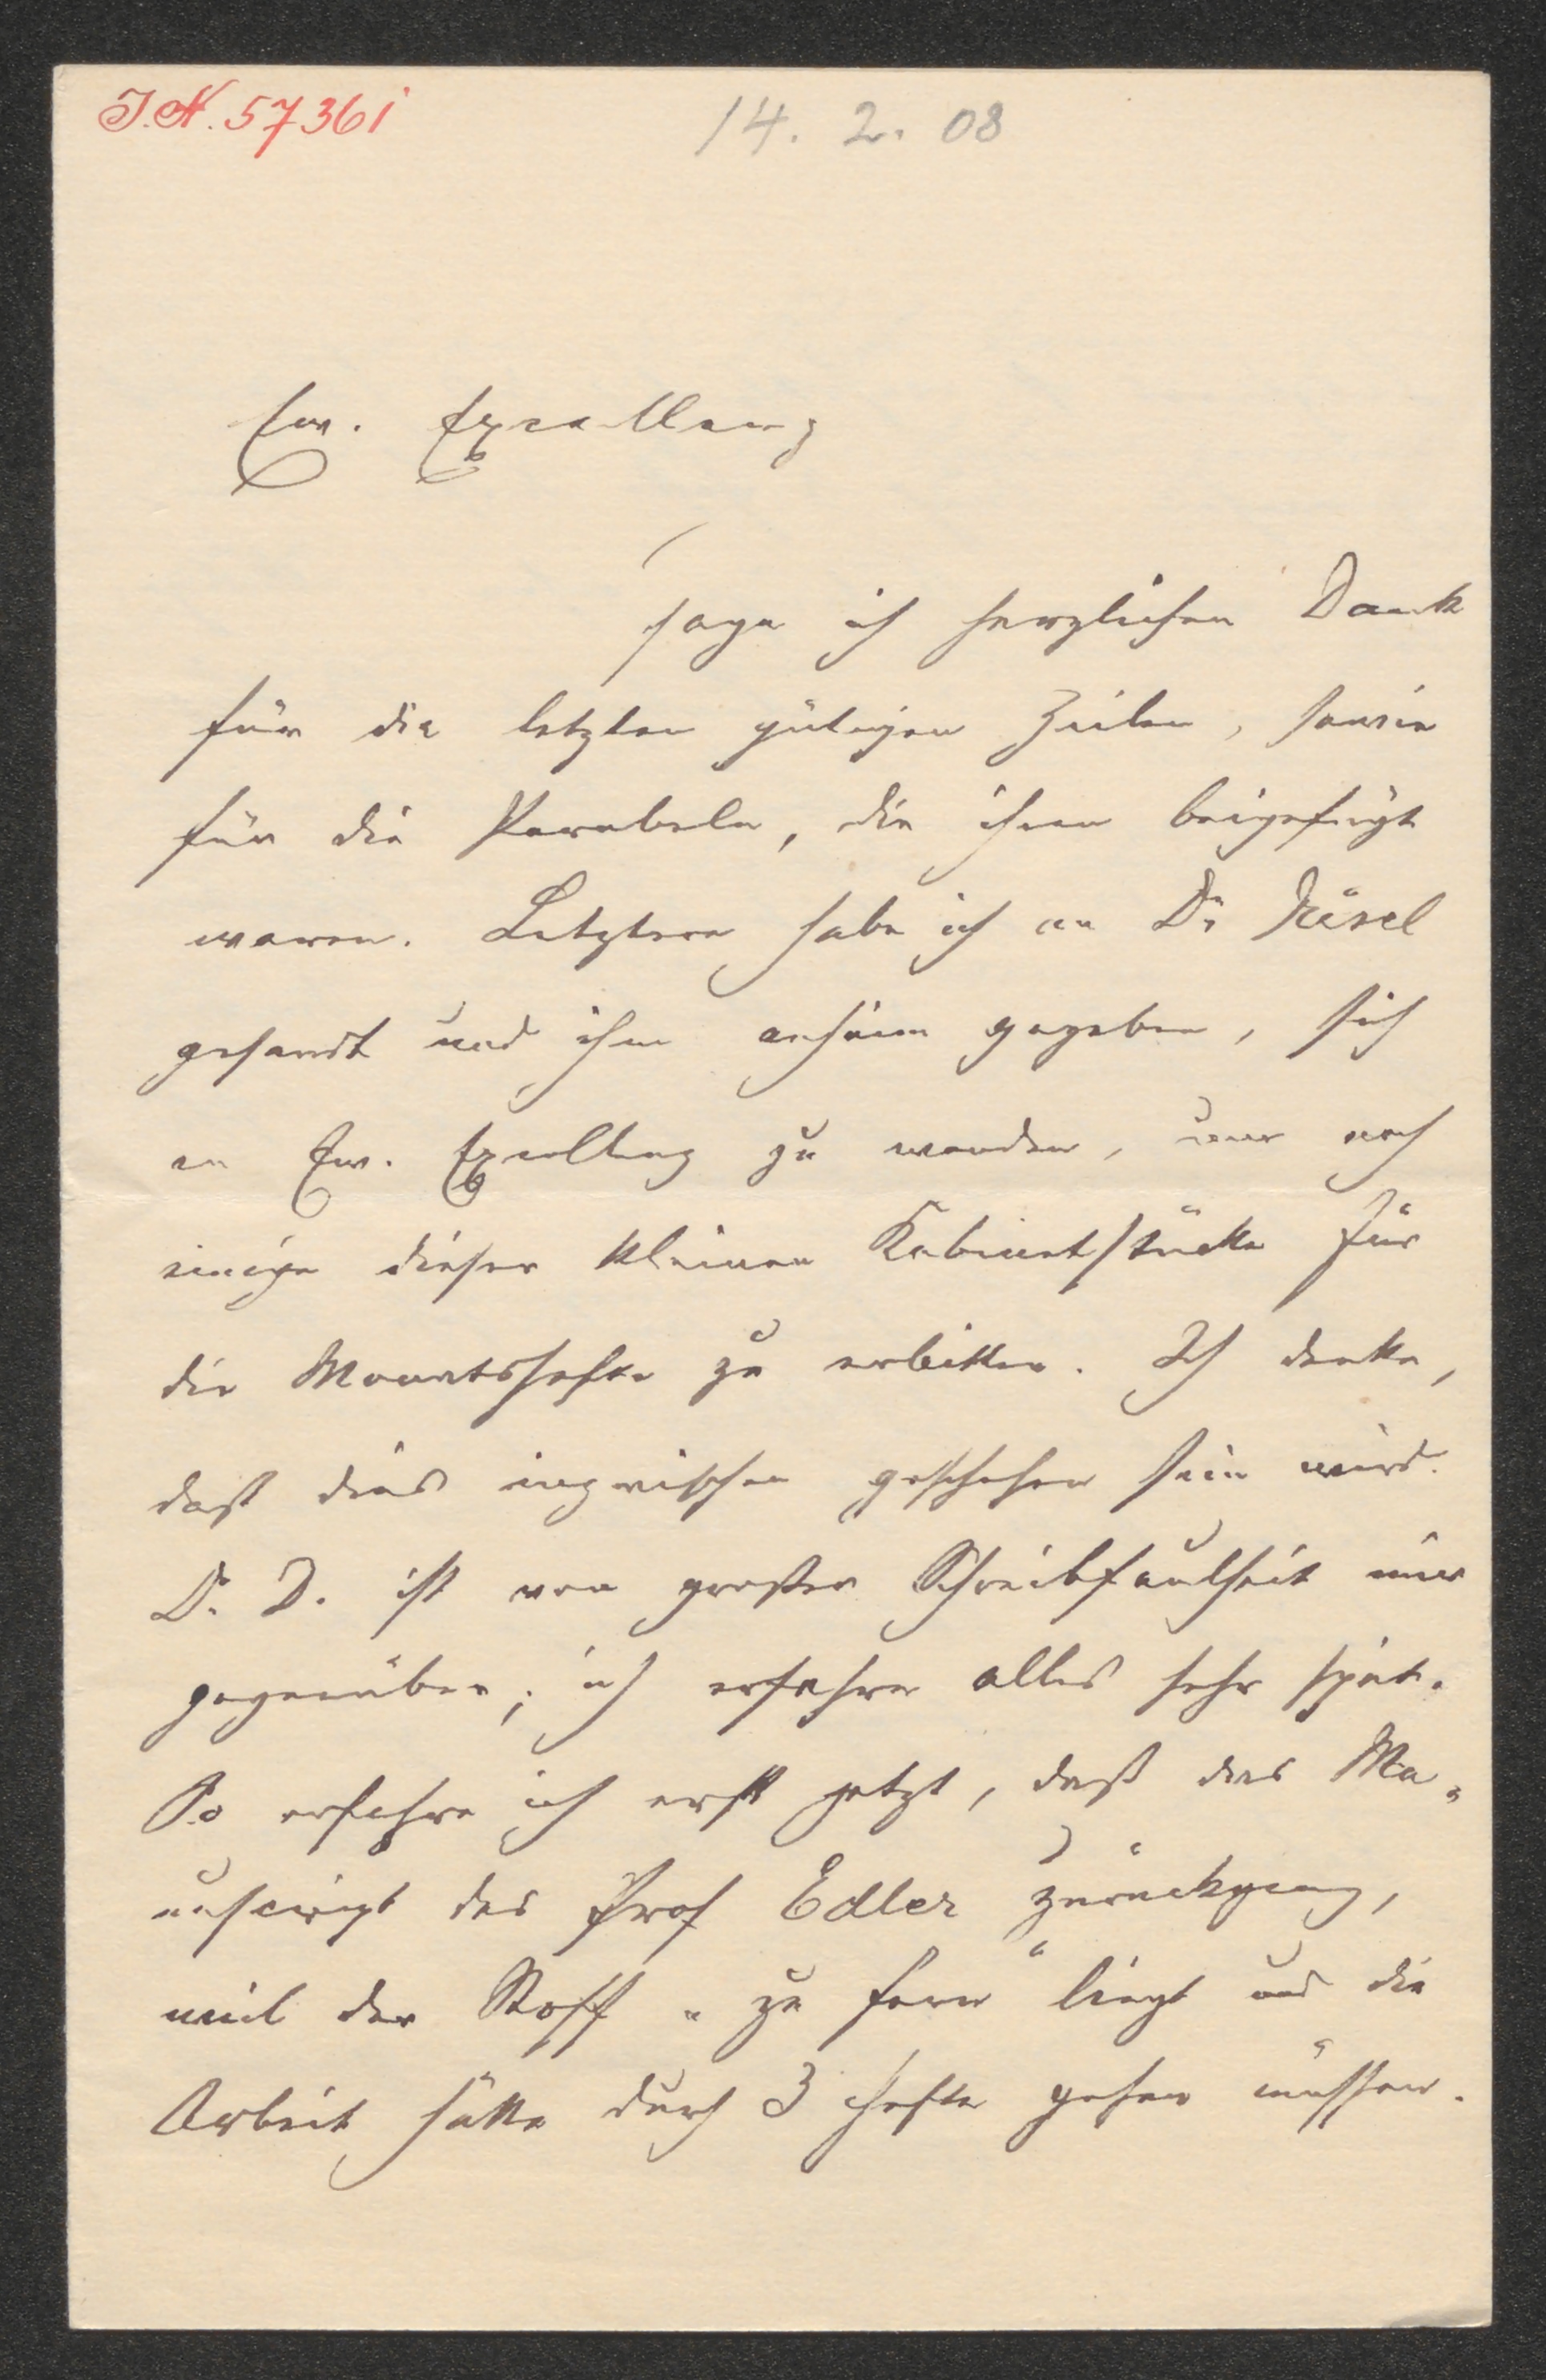 I.N. 57361
14. 2. 08
Ew. Exzellenz
sage ich herzlichen Dank
für die letzten gütigen Zeilen, sowie
für die Parabeln, die ihnen beigefügt
waren. Letztere habe ich an Dr
gesandt und ihm anheim gegeben, sich
an Ew. Exzellenz zu wenden, um noch
einige dieser kleinen Kabinetstücke für
die Monatshefte zu erbitten. Ich denke,
daß dies inzwischen geschehen sein wird.
Dr. D. ist von großer Schreibfaulheit mir
gegenüber; ich erfahre alles sehr spät.
So erfahre ich erst jetzt, daß das Ma-
nuscript des Prof Edler zurückging,
weil der Stoff „zu fern“ liegt und die
Arbeit hätte durch 3 Hefte gehen müssen.